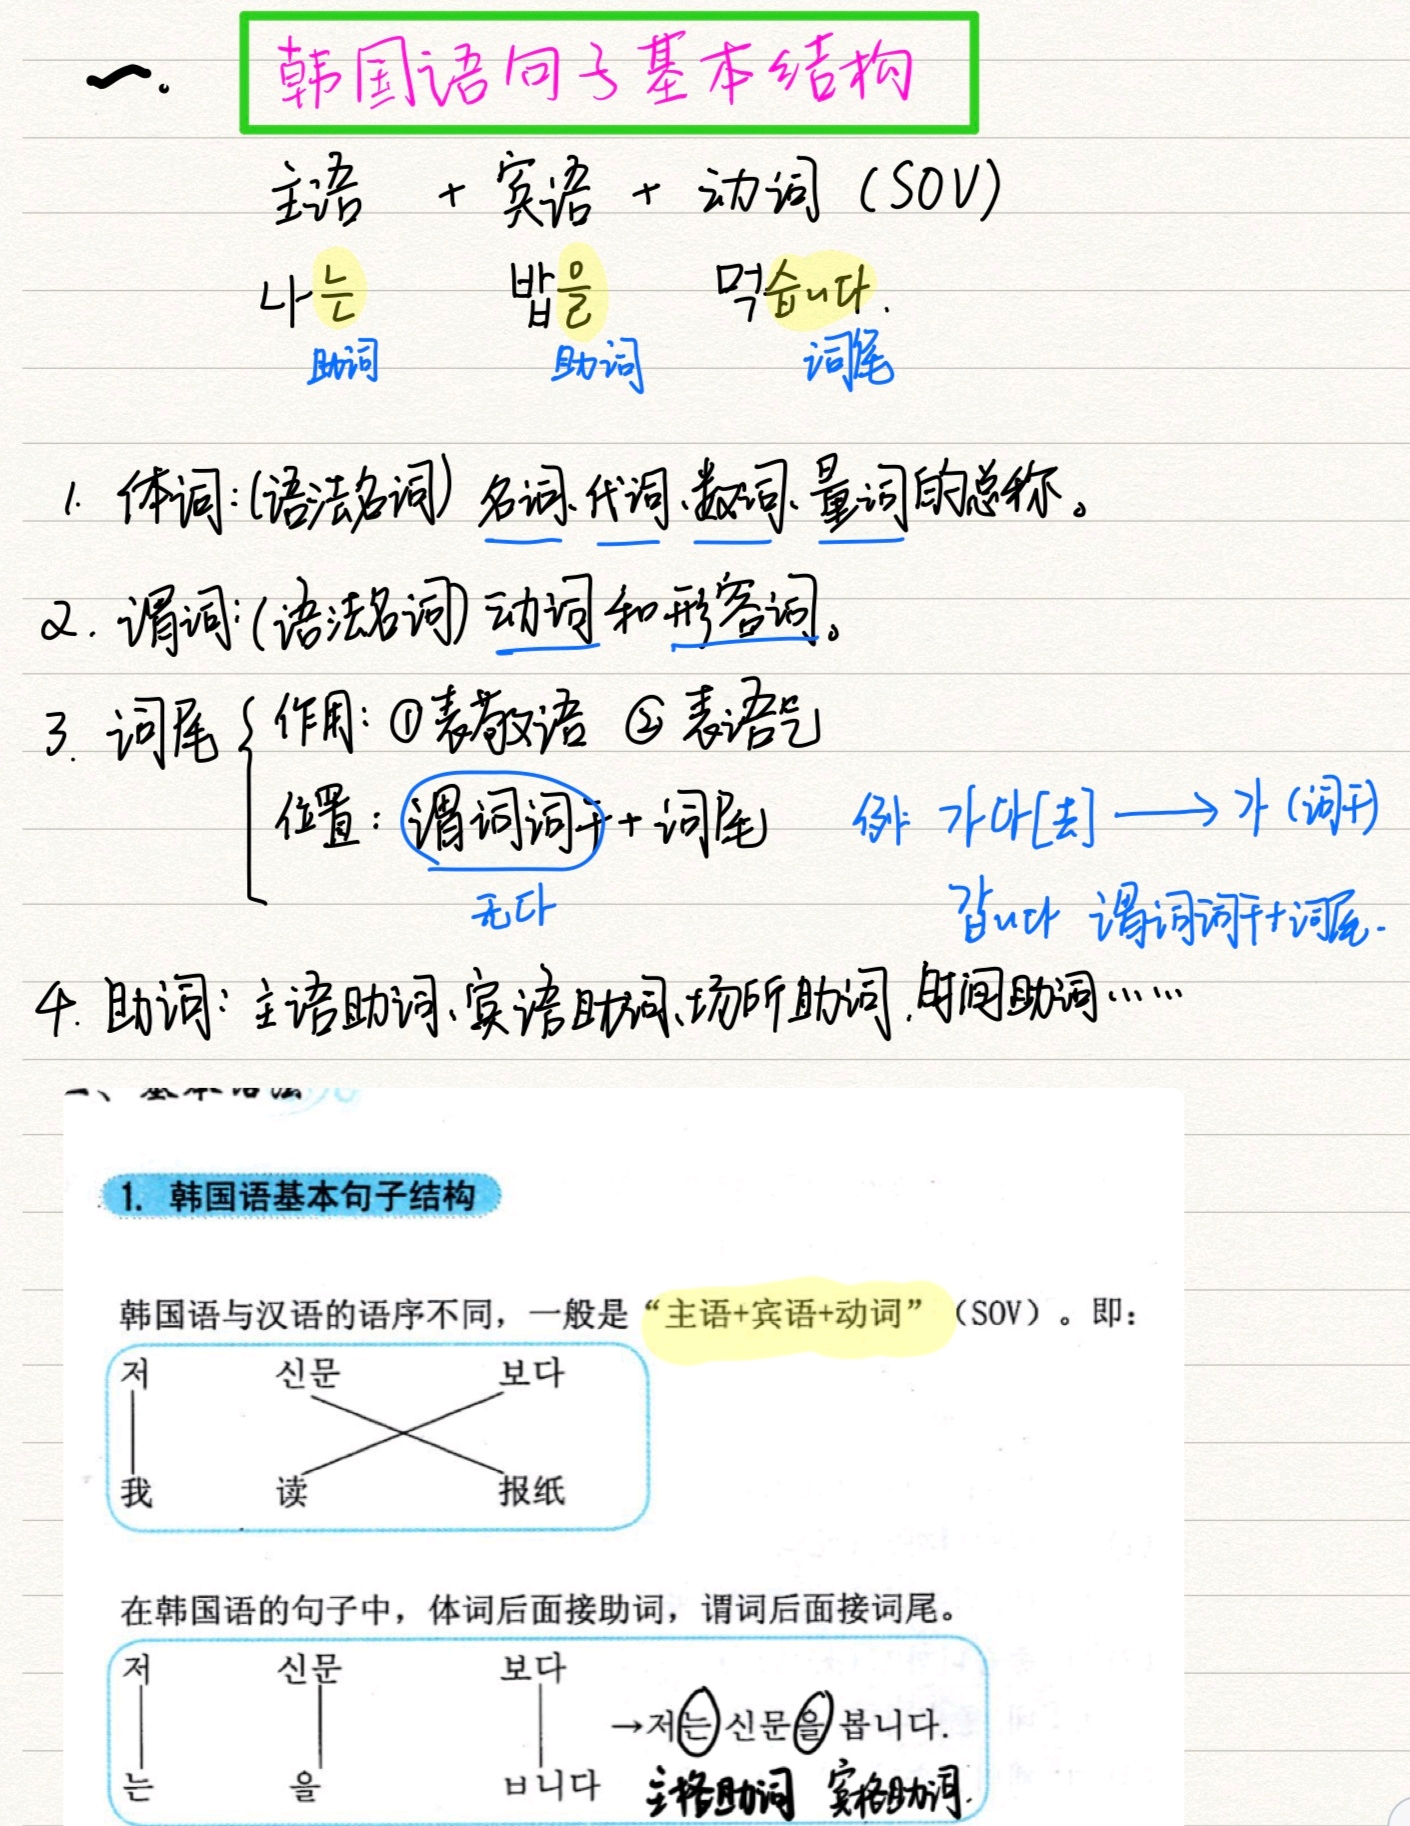 一. 韩国语句子基本结构
主语 + 宾语 + 动词 (SOV)
나는 밥을 먹습니다.
助词 助词 词尾
1. 体词:(语法名词) 名词、代词、数词、量词的总称。
2. 谓词:(语法名词) 动词和形容词。
3. 词尾 { 作用: ①表敬语 ②表语气
位置: 谓词词干+词尾 例: 가다[去] → 가 (词干)
无다 갑니다 谓词词干+词尾.
4. 助词: 主语助词、宾语助词、场所助词、时间助词……
二、基本语法
1. 韩国语基本句子结构
韩国语与汉语的语序不同，一般是“主语+宾语+动词”（SOV）。即：
저 신문 보다
我 读 报纸
在韩国语的句子中，体词后面接助词，谓词后面接词尾。
저 신문 보다
→저는 신문을 봅니다.
는 을 ㅂ니다
主格助词 宾格助词.